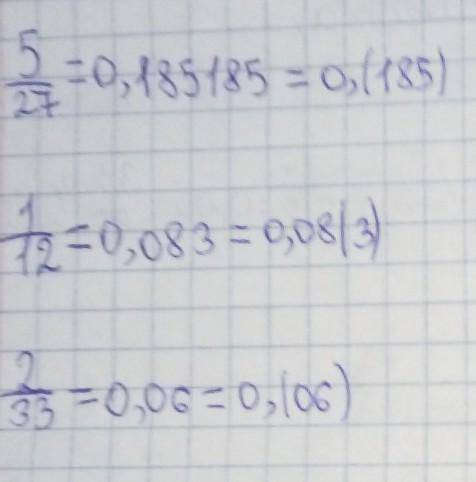 5/27 = 0,185185 = 0,(185)
1/12 = 0,083 = 0,08(3)
2/33 = 0,06 = 0,(06)